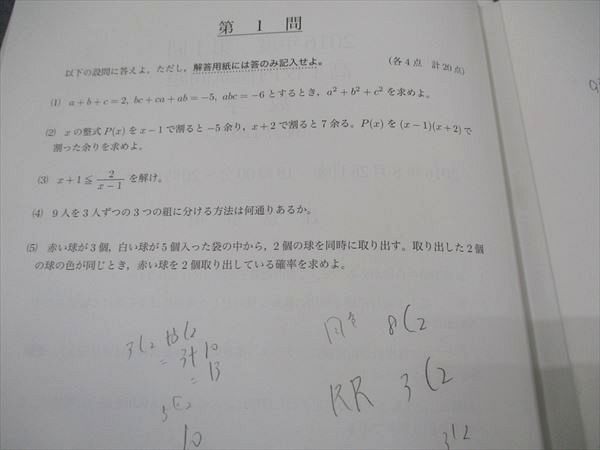 第 1 問
以下の設問に答えよ。ただし，解答用紙には答のみ記入せよ。 (各4点 計20点)
(1) a+b+c=2, bc+ca+ab=−5, abc=−6 とするとき，a²+b²+c² を求めよ。
(2) x の整式 P(x) を x−1 で割ると −5 余り，x+2 で割ると 7 余る。P(x) を (x−1)(x+2) で
割った余りを求めよ。
(3) x+1≦ 2/(x−1) を解け。
(4) 9人を3人ずつの3つの組に分ける方法は何通りあるか。
(5) 赤い球が3個，白い球が5個入った袋の中から，2個の球を同時に取り出す。取り出した2個
の球の色が同じとき，赤い球を2個取り出している確率を求めよ。
同色 8C2
= 3+10
= 13
RR 3C2
3C2
10